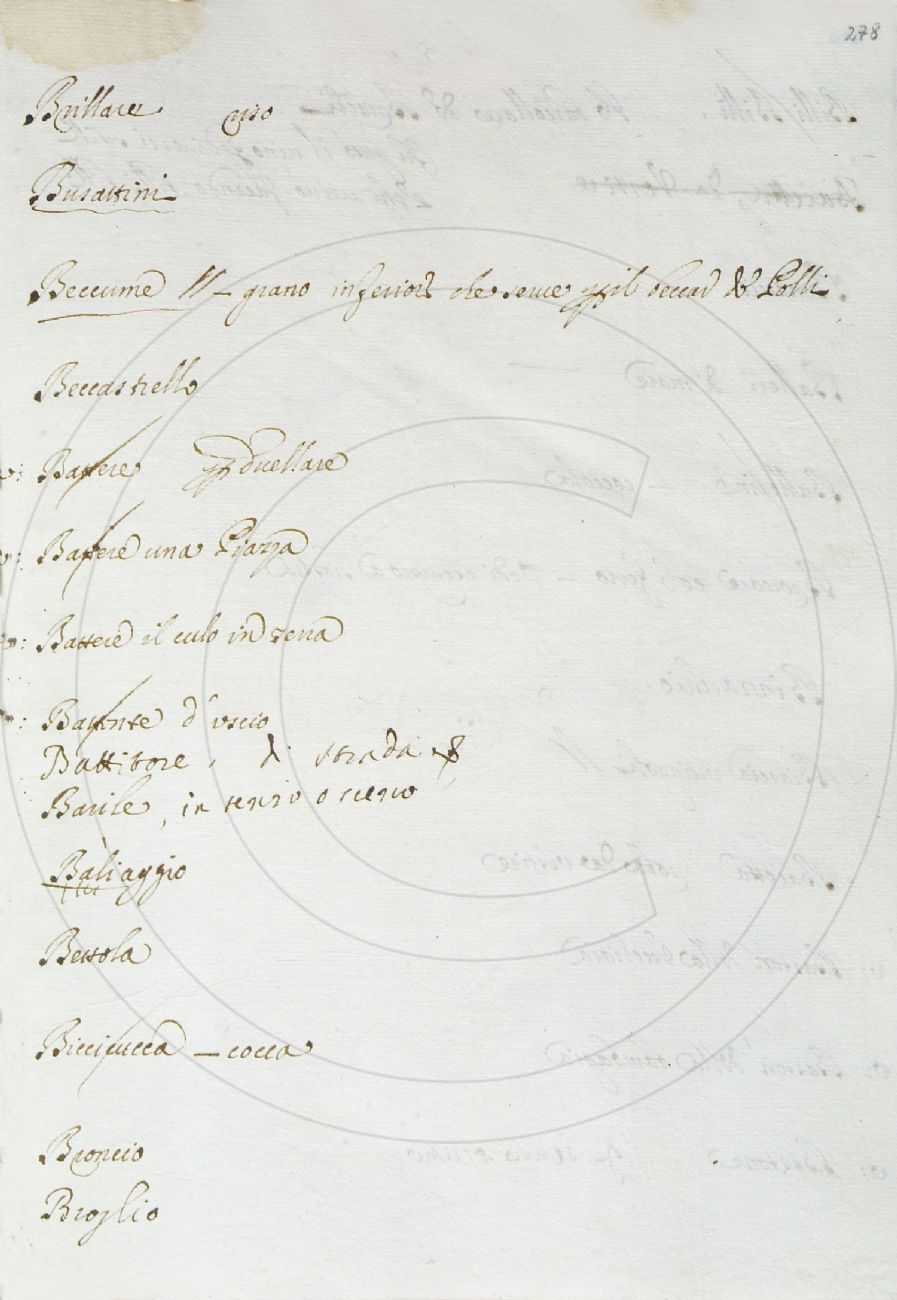 278
Brillare uso
Busattini
Beccume // – grano inferiore che serve pp il beccar de Polli
Beccastrello
v: Battere pp duellare
v: Battere una Piazza
v: Battere il culo in terra
v: Battente d'uscio
Battitore, di strada
Barile, in
Baliaggio
Bettola
Biccicucca – cocca
Broncio
Broglio